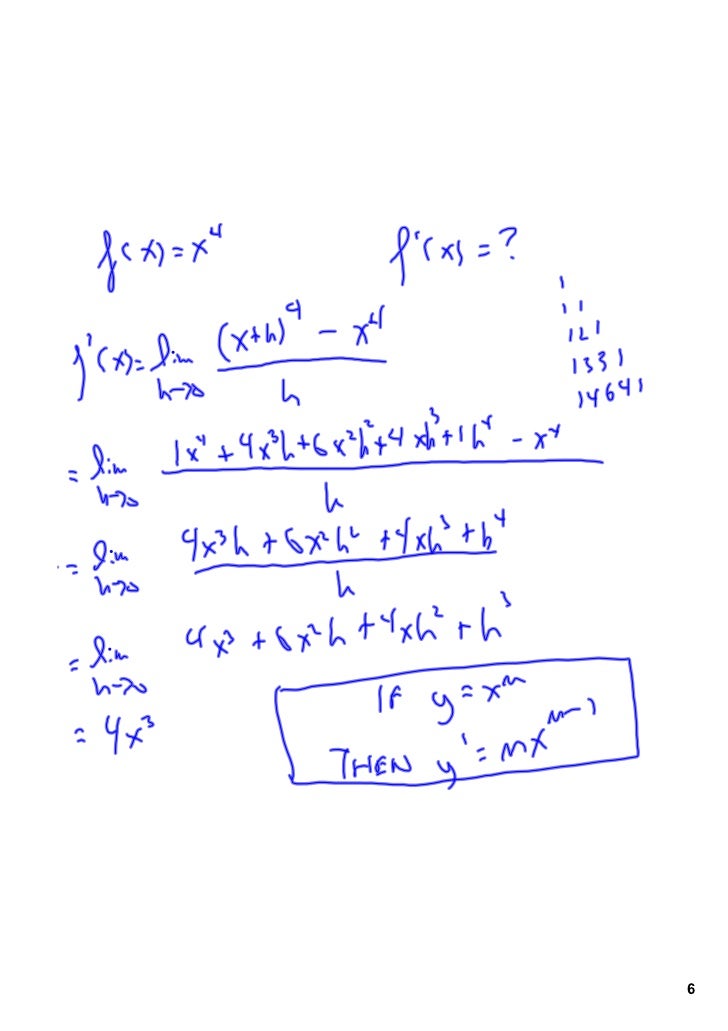 f(x) = x⁴    f'(x) = ?
1
1 1
1 2 1
1 3 3 1
1 4 6 4 1
f'(x) = lim h→0 ((x+h)⁴ − x⁴) / h
= lim h→0 (1x⁴ + 4x³h + 6x²h² + 4xh³ + 1h⁴ − x⁴) / h
= lim h→0 (4x³h + 6x²h² + 4xh³ + h⁴) / h
= lim h→0 4x³ + 6x²h + 4xh² + h³
= 4x³
IF y = xⁿ
THEN y' = nxⁿ⁻¹
6